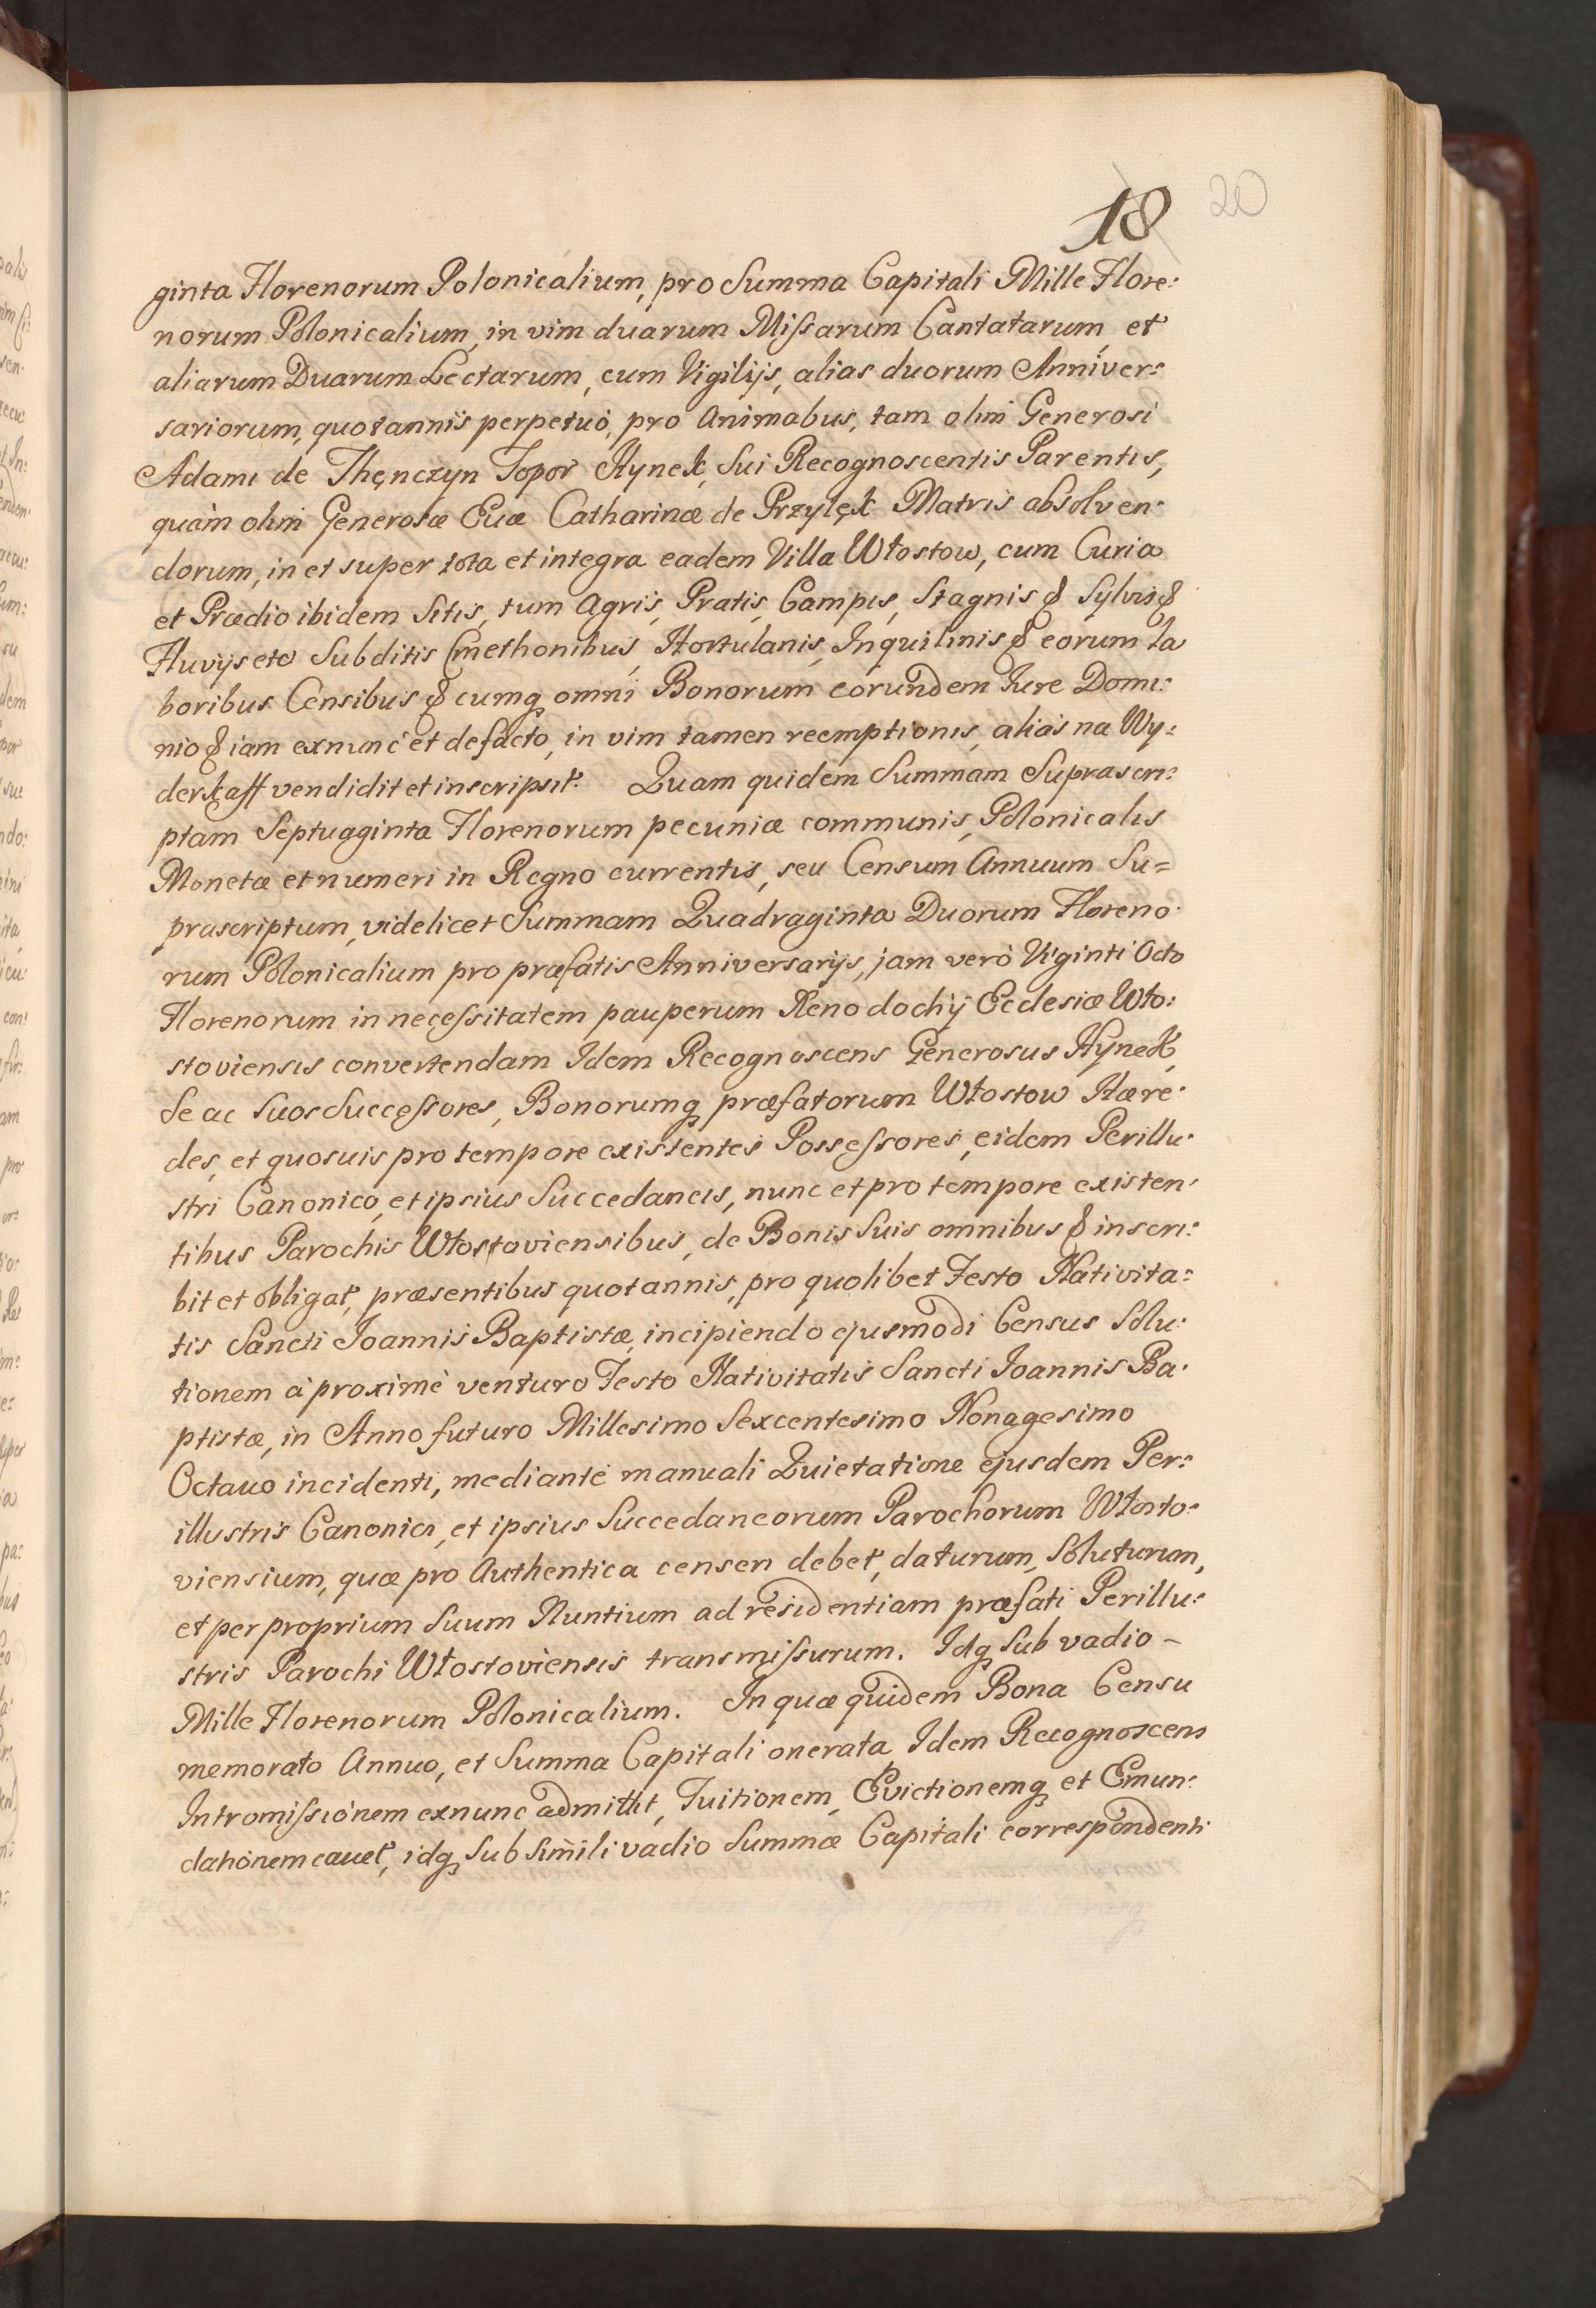 18 20
ginta Florenorum Polonicalium, pro Summa Capitali Mille Flore:
norum Polonicalium, in vim duarum Missarum Cantatarum, et
aliarum Duarum Lectarum, cum Vigilijs, alias duorum Anniver:
sariorum, quotannis perpetuò, pro Animabus, tam olim Generosi
Adami de Thęnczyn Topor Hynek, sui Recognoscentis Parentis,
quàm olim Generosæ Euæ Catharinæ de Przyłęk Matris absolven:
dorum, in et super tota et integra eadem Villa Włostow, cum Curia
et Prædio ibidem sitis, tum Agris, Pratis, Campis, Stagnis & Sylvis &
Fluvijs etc Subditis Cmethonibus, Hortulanis, Inquilinis & eorum la
boribus Censibus & cumq omni Bonorum eorundem Iure Domi:
nio & iam exnunc et defacto, in vim tamen reemptionis, alias na Wy:
derkaff vendidit et inscripsit. Quam quidem Summam Suprascri:
ptam Septuagginta Florenorum pecuniæ communis, Polonicalis
Monetæ et numeri in Regno currentis, seu Censum Annuum Su=
prascriptum, videlicet Summam Quadraginta Duorum Floreno:
rum Polonicalium pro præfatis Anniversarijs, jam verò Viginti Octo
Florenorum in necessitatem pauperum Xenodochij Ecclesiæ Wło:
stoviensis convertendam Idem Recognoscens Generosus Hynek,
Se ac Suos Successores, Bonorumq præfatorum Włostow Hære:
des, et quosuis pro tempore existentes Possessores, eidem Perillu:
stri Canonico, et ipsius Succedaneis, nunc et pro tempore existen:
tibus Parochis Włostoviensibus, de Bonis Suis omnibus & inscri:
bit et obligat, præsentibus quotannis, pro quolibet Festo Nativita:
tis Sancti Joannis Baptistæ, incipiendo ejusmodi Census Solu:
tionem à proximè venturo Festo Nativitatis Sancti Joannis Ba:
ptistæ, in Anno futuro Millesimo Sexcentesimo Nonagesimo
Octauo incidenti, mediante manuali Quietatione ejusdem Per:
illustris Canonici, et ipsius Succedaneorum Parochorum Włosto:
viensium, quæ pro Authentica censeri debet, daturum, Soluturum,
et per proprium Suum Nuntium ad residentiam præfati Perillu:
stris Parochi Włostoviensis transmissurum. Idq Sub vadio –
Mille Florenorum Polonicalium. In quæ quidem Bona Censu
memorato Annuo, et Summa Capitali onerata, Idem Recognoscens
Intromissionem exnunc admittit, Tuitionem, Evictionemq et Emun:
dationem cauet, idq Sub simili vadio Summæ Capitali correspondenti